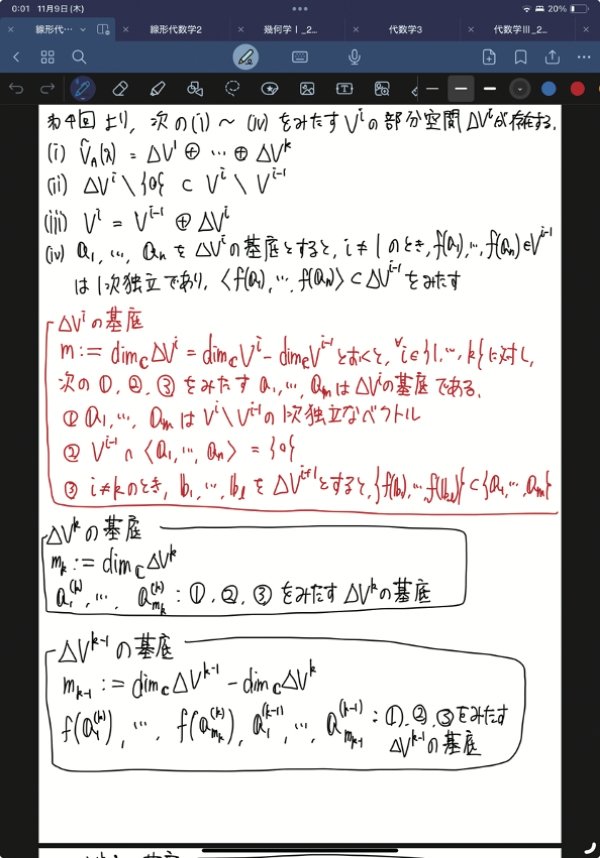 0:01 11月9日(木)
20%
線形代…
線形代数学2
幾何学Ⅰ_2…
代数学3
代数学Ⅲ_2…
第4回より、次の(i)〜(iv)をみたすVⁱの部分空間ΔVⁱが存在する.
(i) Ṽₙ(λ) = ΔV¹ ⊕ … ⊕ ΔVᵏ
(ii) ΔVⁱ \ {0} ⊂ Vⁱ \ Vⁱ⁻¹
(iii) Vⁱ = Vⁱ⁻¹ ⊕ ΔVⁱ
(iv) a₁, …, aₙ を ΔVⁱの基底とすると, i ≠ 1 のとき, f(a₁), …, f(aₙ) ∈ Vⁱ⁻¹
は1次独立であり, ⟨f(a₁), …, f(aₙ)⟩ ⊂ ΔVⁱ⁻¹をみたす
ΔVⁱの基底
m := dim_C ΔVⁱ = dim_C Vⁱ - dim_C Vⁱ⁻¹とおくと, ∀i∈{1, …, k}に対し,
次の①, ②, ③をみたす a₁, …, aₘはΔVⁱの基底である.
① a₁, …, aₘ は Vⁱ\Vⁱ⁻¹の1次独立なベクトル
② Vⁱ⁻¹ ∩ ⟨a₁, …, aₙ⟩ = {0}
③ i≠kのとき, b₁, …, bₗを ΔVⁱ⁺¹とすると, {f(b₁), …, f(bₗ)} ⊂ {a₁, …, aₘ}
ΔVᵏの基底
mₖ := dim_C ΔVᵏ
a₁⁽ᵏ⁾, …, a_{mₖ}⁽ᵏ⁾ : ①, ②, ③をみたす ΔVᵏの基底
ΔVᵏ⁻¹の基底
mₖ₋₁ := dim_C ΔVᵏ⁻¹ - dim_C ΔVᵏ
f(a₁⁽ᵏ⁾), …, f(a_{mₖ}⁽ᵏ⁾), a₁⁽ᵏ⁻¹⁾, …, a_{mₖ₋₁}⁽ᵏ⁻¹⁾ : ①, ②, ③をみたす
ΔVᵏ⁻¹の基底